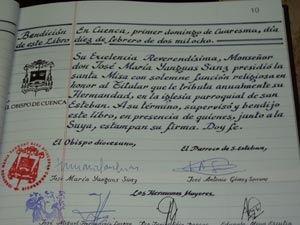 10
Bendición
de este Libro
En Cuenca, primer domingo de Cuaresma, día
diez de febrero de dos mil ocho.
Su Excelencia Reverendísima, Monseñor
don José María Yanguas Sanz presidió la
santa Misa con solemne función religiosa en
honor al Titular que le tributa anualmente su
Hermandad, en la iglesia parroquial de San
Esteban. A su término, supervisó y bendijo
este libro, en presencia de quienes, junto a la
Suya, estampan su firma. Doy fe.
EL OBISPO DE CUENCA
El Obispo diocesano,
El Párroco de S. Esteban,
José María Yanguas Sanz
José Antonio Gómez
Los Hermanos Mayores